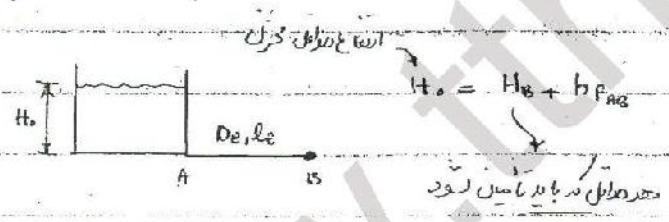 ارتفاع حداقل مخزن
H₀ = H_B + h_{F_{AB}}
H₀
De, le
A B
حداقل که باید تامین شود